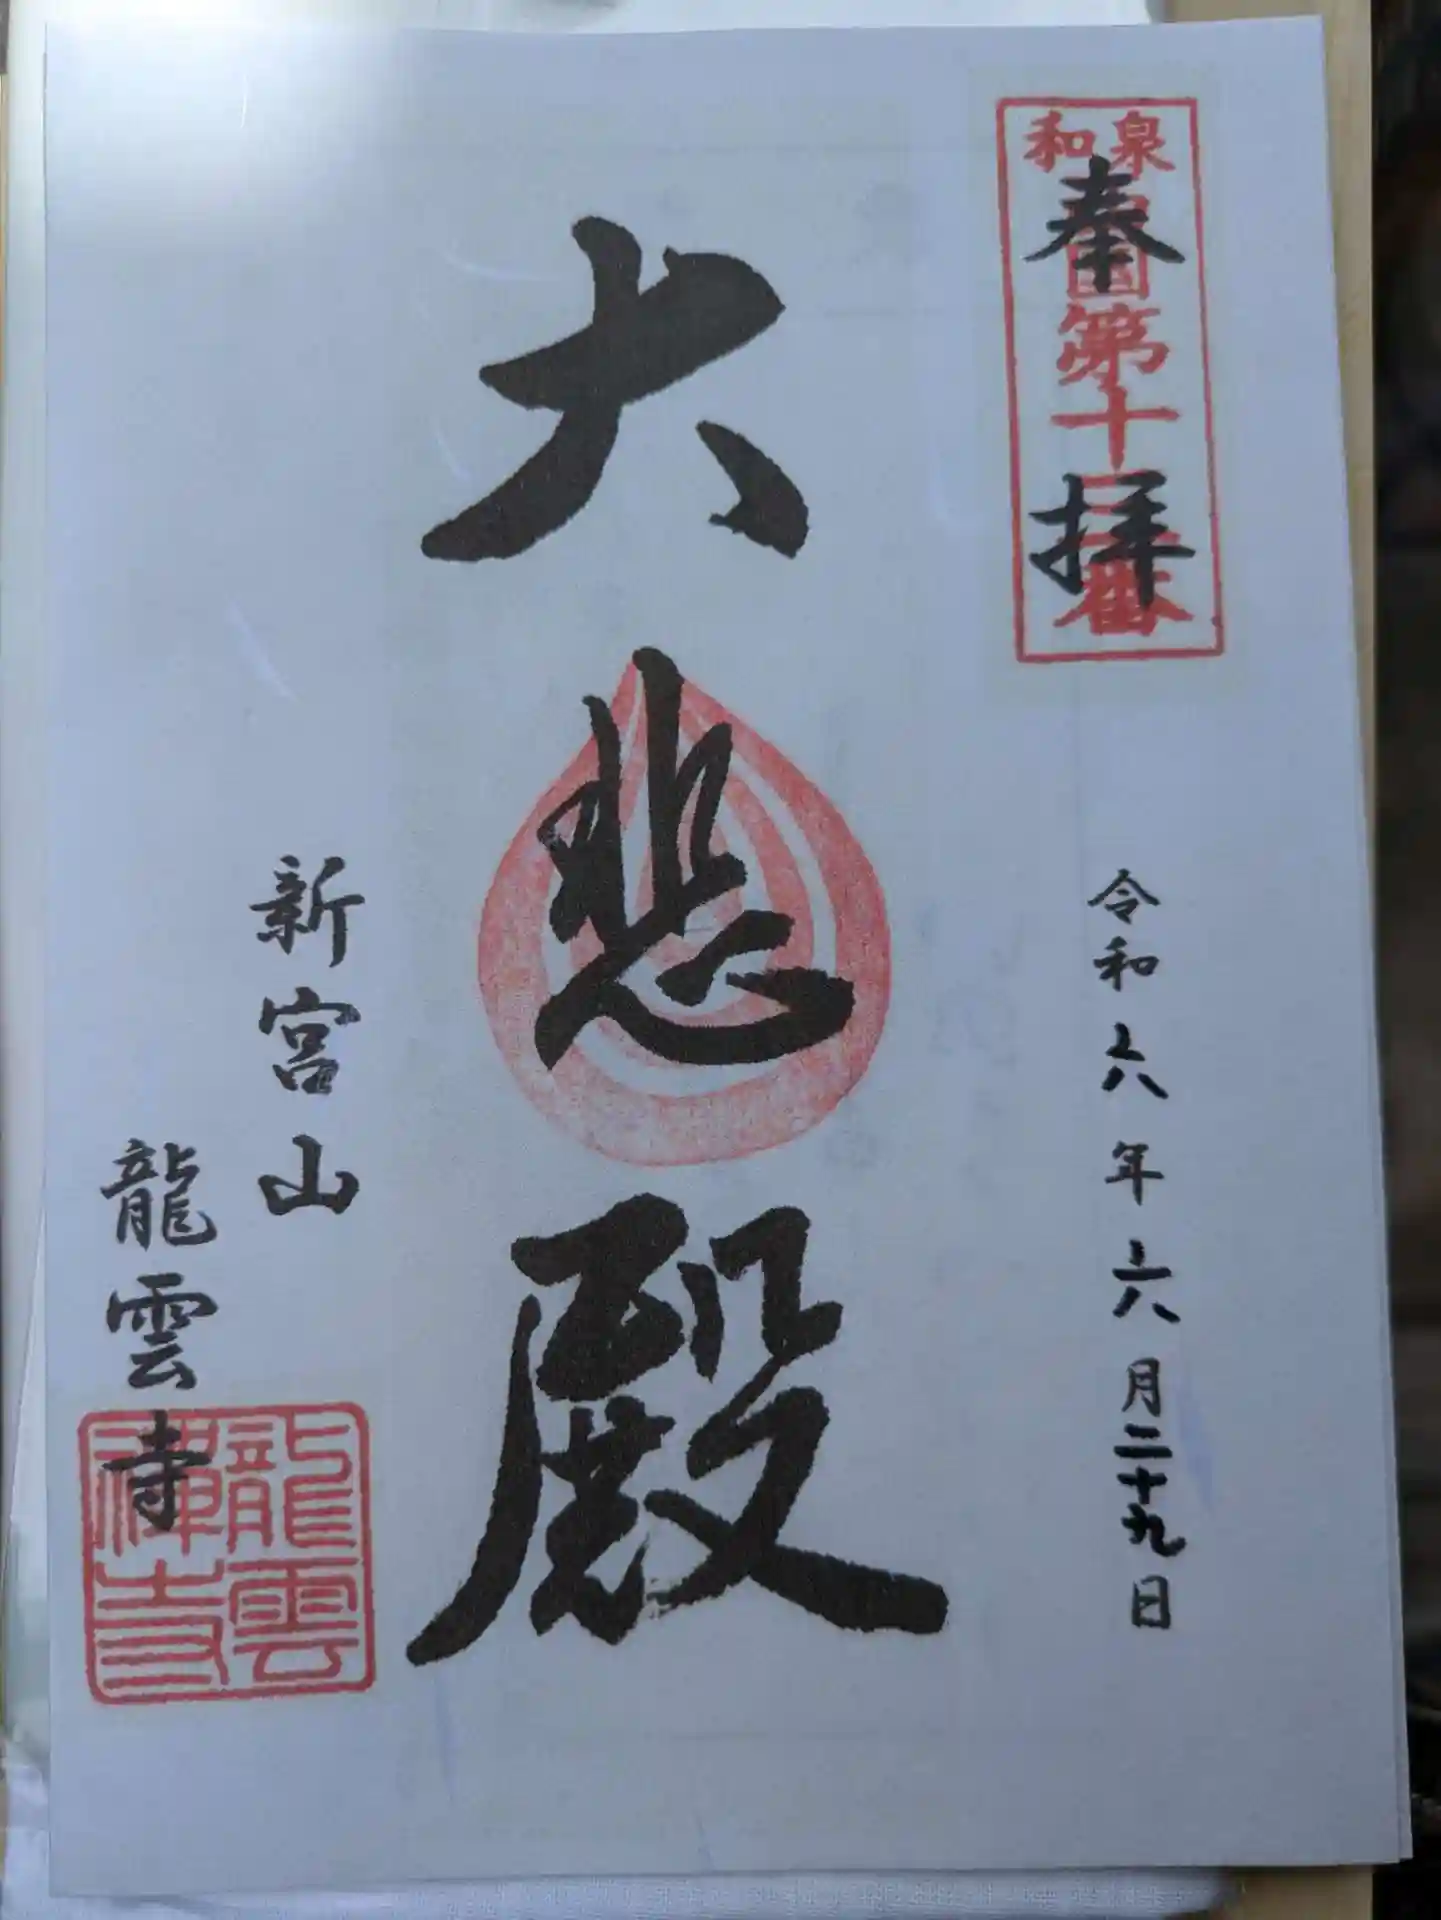 奉拝
和泉
西国第十二番
令和六年六月二十九日
大悲殿
新宮山
龍雲寺
龍雲禅寺